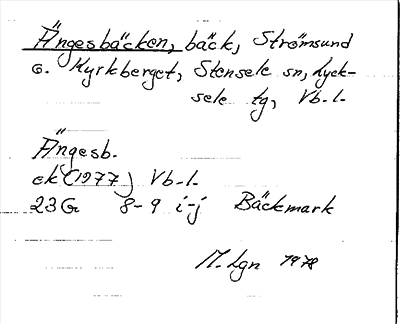 Ängesbäcken, bäck, Strömsund
o. Kyrkberget, Stensele sn, Lyck-
sele tg, Vb-l.
Ängesb.
ek (1977) Vb-l.
23G 8-9 i-j Bäckmark
M. Lgn 1978